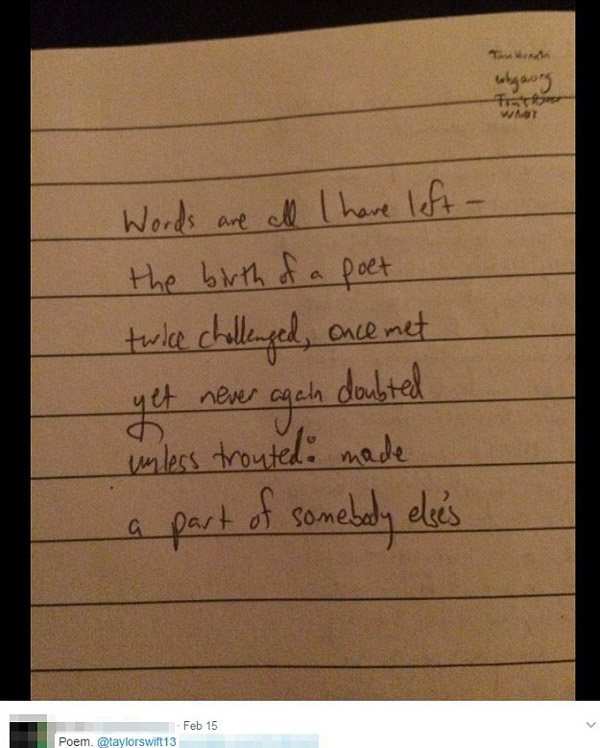 Words are all I have left –
the birth of a poet
twice challenged, once met
yet never again doubted
unless trouted: made
a part of somebody else's
· Feb 15
Poem. @taylorswift13